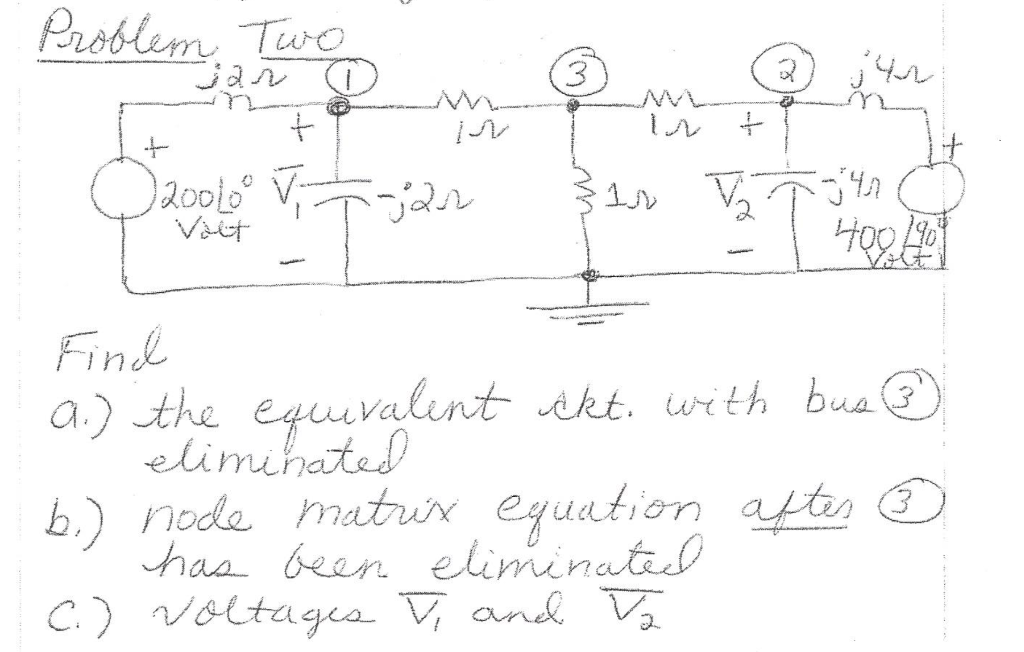 Problem Two
j2Ω ① ③ ② j4Ω
1Ω 1Ω
+ + + +
200∠0° Volt V̄₁ -j2Ω 1Ω V̄₂ -j4Ω 400∠90° Volt
- -
Find
a.) the equivalent ckt. with bus ③
eliminated
b.) node matrix equation after ③
has been eliminated
c.) voltages V̄₁ and V̄₂